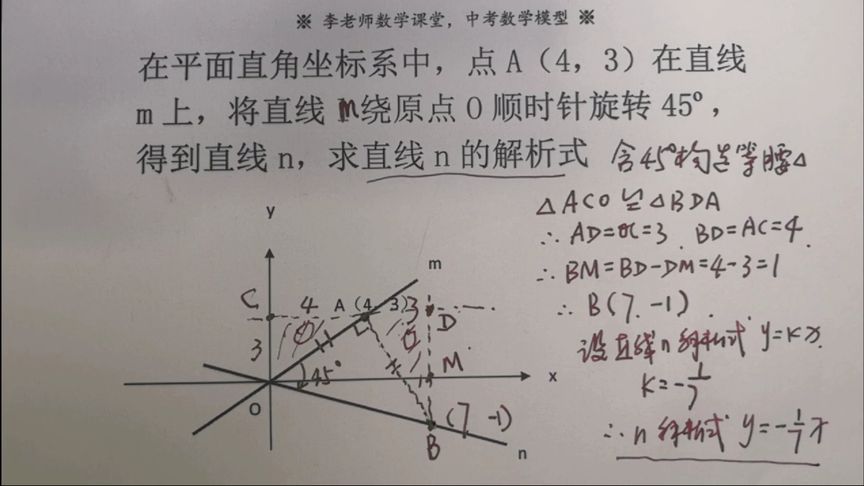 ※ 李老师数学课堂，中考数学模型 ※
在平面直角坐标系中，点 A（4，3）在直线
m 上，将直线 m 绕原点 O 顺时针旋转 45°，
得到直线 n，求直线 n 的解析式
含45°构造等腰△
△ACO≌△BDA
∴ AD=OC=3 . BD=AC=4 .
∴ BM=BD-DM=4-3=1
∴ B(7. -1) .
设直线n解析式 y=kx.
k=-1/7
∴ n解析式 y=-1/7x
y
m
C
4
A（4，3）
3
D
3
45°
M
x
O
B
(7 -1)
n